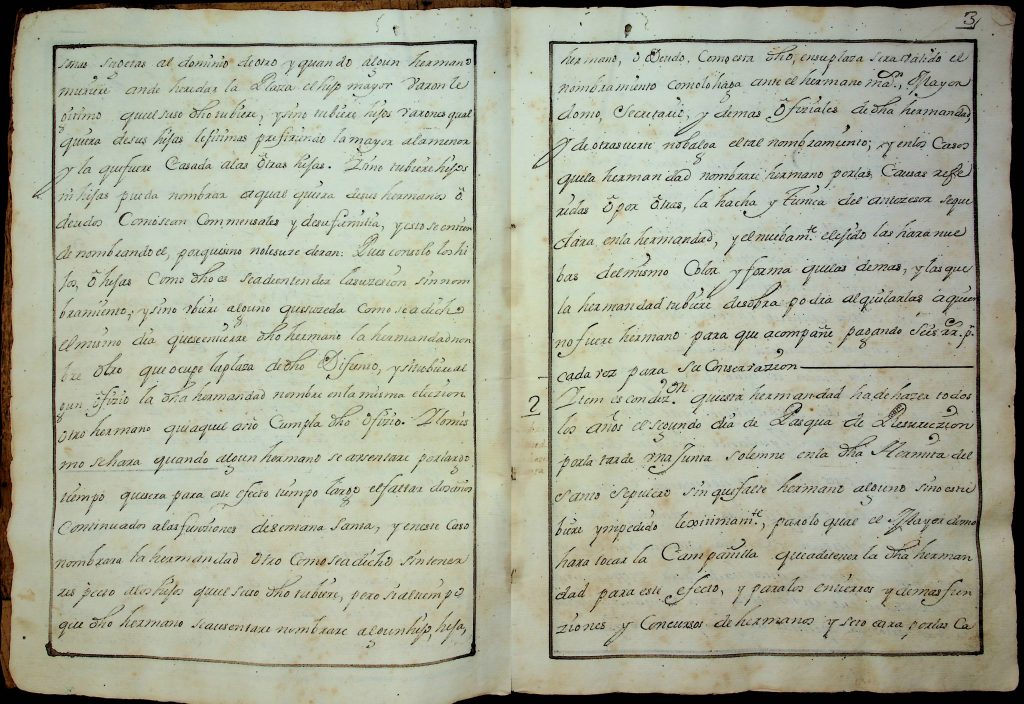 sonas sujetas al dominio de otro y quando algun hermano
muriere ande heredar la Plaza el hijo mayor varon le
gitimo que el suso dho tubiere, y sino tubiere hijos varones qual
quiera de sus hijas lefitimas prefiriendo la mayor ala menor
y la que fuere Casada alas otras hijas. Y sino tubiere hijos
ni hijas pueda nombrar a qual quiera de sus hermanos ô
deudos Como sean Commensales y de su familia, y esto se entien
de nombrando el, porque sino no les ure deran: Pues con solo los hi
jos, ô hijas Como dho es se a de entender la suzesion sin nom
bramiento, y sino ubiere alguno que suzeda Como se a dicho
el mismo dia que se enterre dho hermano la hermandad nom
bre otro que ocupe la plaza de dho Difunto, y si tubiere al
gun ofizio la dha hermandad nombre en la misma eleczion
otro hermano que aquel año Cumpla dho ofizio. Y lo mis
mo se hara quando algun hermano se ausentare por largo
tiempo que sera para este efecto tiempo largo el faltar dos años
Continuados a las funziones de semana santa, y en este Caso
nombrara la hermandad otro Como se a dicho sin tener
respecto a los hijos que el suso dho tubiere, pero si al tiempo
que dho hermano se ausentare nombrare algun hijo, hija,
3
hermano, ô Deudo, Como esta dho, en su plaza sera valido el
nombramiento Como lo haga ante el hermano ma.r, Mayor
domo, Secretario, y demas ofiziales de dha hermandad,
y de otra suerte no balga el tal nombramiento, y en los Casos
que la hermandad nombrare hermano por las Causas refe
ridas ô por otras, la hacha y Tunica del antezesor se que
dara, en la hermandad, y el nuebam.te elejido las hara nue
bas del mismo Color y forma que las demas, y las que
la hermandad tubiere de sobra podra alquilarlas a quien
no fuere hermano para que acompañe pagando seis rr.s p.r
cada vez para su Conserbazion
2 Ytem es condiz.on que esta hermandad ha de hazer todos
los años el segundo dia de Pasqua de Resurreczion
por la tarde una Junta solemne en la dha Hermita del
santo sepulcro sin que falte hermano alguno sino estu
biere ympedido lexitimam.te, para lo qual el Mayordomo
hara tocar la Campanilla que a de tener la dha herman
dad para este efecto, y para los entierros y demas fun
ziones y Concursos de hermanos y se to cara por las Ca